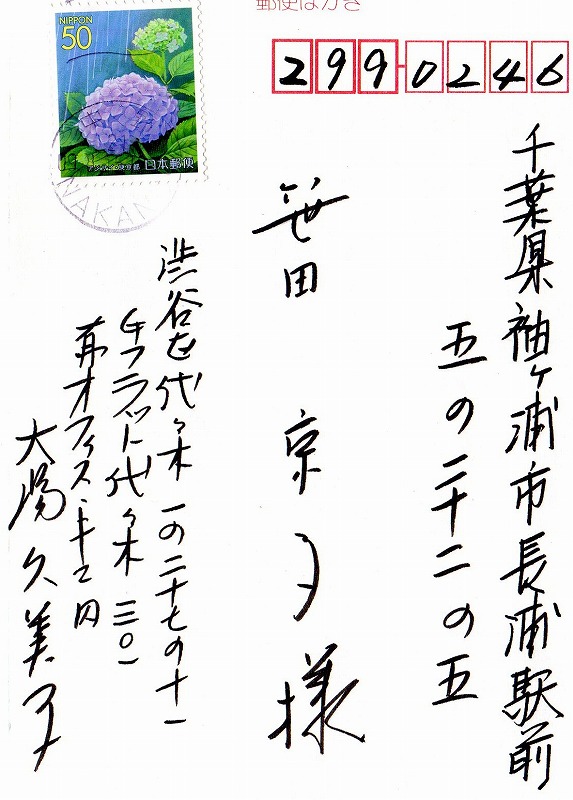 郵便はがき
NIPPON
50
日本郵便
NAKAN
299-0246
千葉県袖ヶ浦市長浦駅前
五の二十二の五
笹田 京子様
渋谷区代々木一の二十七の十一
チフラット代々木 三〇一
オフィス・キキ内
大場久美子